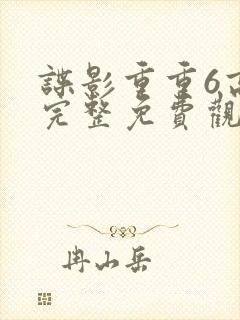 諜影重重6高
完整免費觀
冉山岳